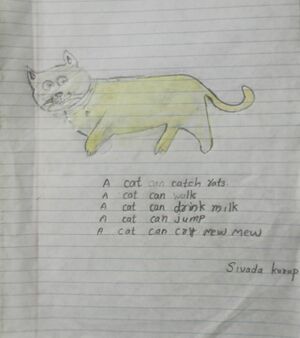 A cat can catch rats.
A cat can walk
A cat can drink milk
A cat can jump
A cat can cry mew mew
Sivada kurup